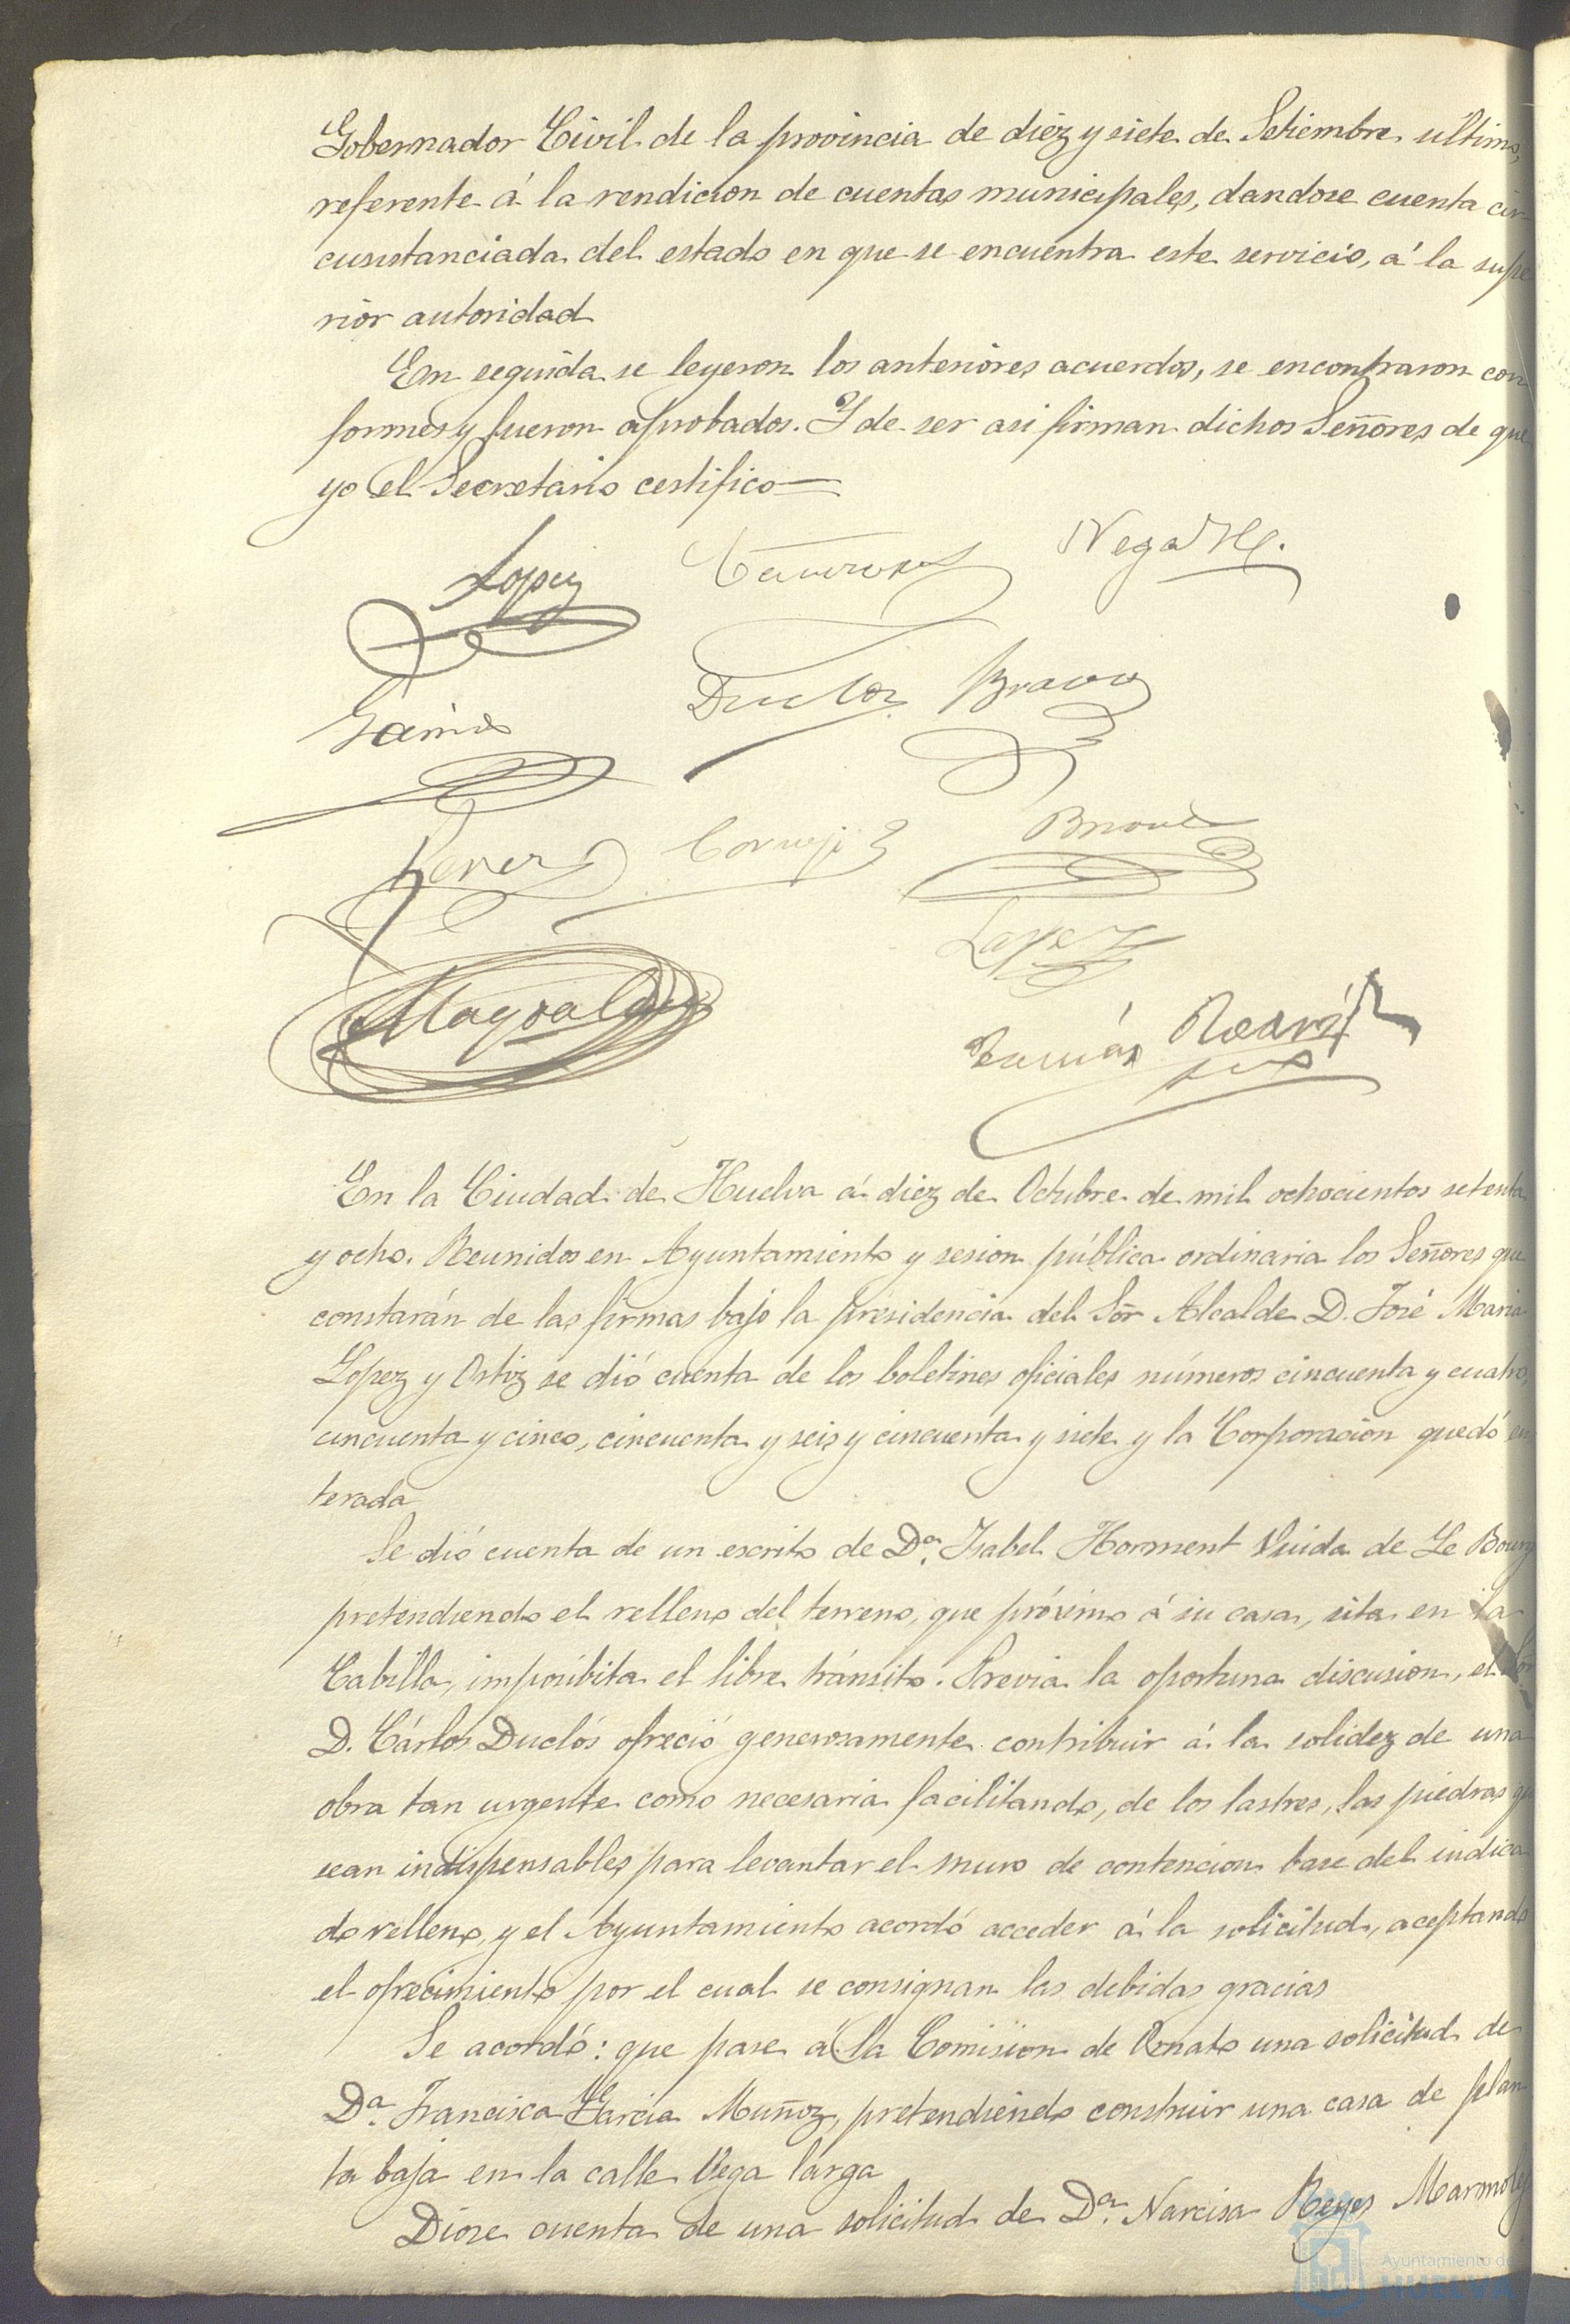 Gobernador Civil de la provincia de diéz y siete de Setiembre último,
referente á la rendicion de cuentas municipales, dandose cuenta cir
cunstanciada del estado en que se encuentra este servicio, á la supe
rior autoridad
En seguida se leyeron los anteriores acuerdos, se encontraron con
formes y fueron aprobados. Y de ser asi firman dichos Señores de que
yo el Secretario certifico
Lopez
Vega
Garcia
Duclos Bravo
Perez Cornejo
Lopez
Ramirez
En la Ciudad de Huelva á diez de Octubre de mil ochocientos setenta
y ocho. Reunidos en Ayuntamiento y sesion pública ordinaria los Señores que
constarán de las firmas bajo la presidencia del Sor Alcalde D. José Maria
Lopez y Ortiz se dió cuenta de los boletines oficiales números cincuenta y cuatro,
cincuenta y cinco, cincuenta y seis y cincuenta y siete y la Corporacion quedó en
terada
Se dió cuenta de un escrito de Da. Isabel Horment Viuda de Le Bourg
pretendiendo el relleno del terreno, que próximo á su casa, sita en la
Cabilla, imposibita el libre tránsito. Previa la oportuna discusion, el Sor
D. Cárlos Duclós ofreció generosamente contribuir á la solidez de una
obra tan urgente como necesaria facilitando, de los lastres, las piedras que
sean indispensables para levantar el muro de contencion base del indica
do relleno, y el Ayuntamiento acordó acceder á la solicitud, aceptando
el ofrecimiento por el cual se consignan las debidas gracias
Se acordó: que pase á la Comision de Ornato una solicitud de
Da. Francisca Garcia Muñoz, pretendiendo construir una casa de plan
ta baja en la calle Vega larga
Diose cuenta de una solicitud de Da. Narcisa Reyes Marmolej
Ayuntamiento de
HUELVA